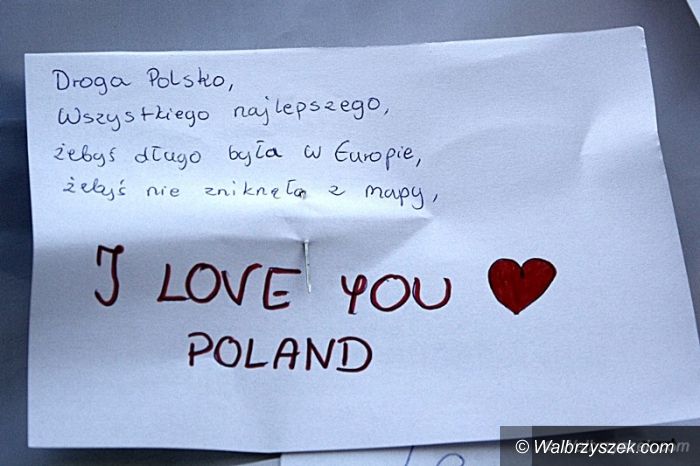 Droga Polsko,
Wszystkiego najlepszego,
żebyś długo była w Europie,
żebyś nie zniknęła z mapy,
I LOVE YOU
POLAND
© Walbrzyszek.com